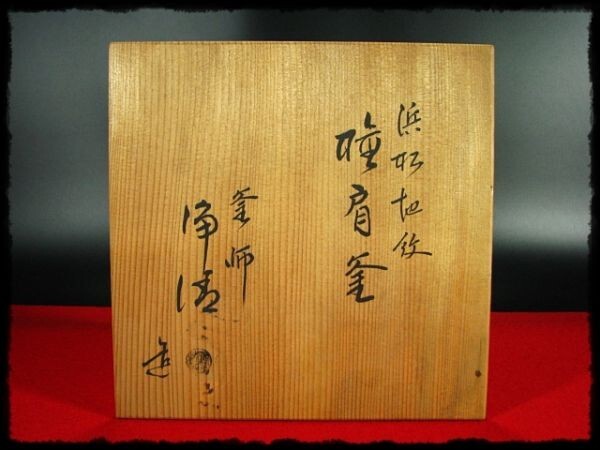 浜松地紋
撫肩釜
釜師
浄清
造